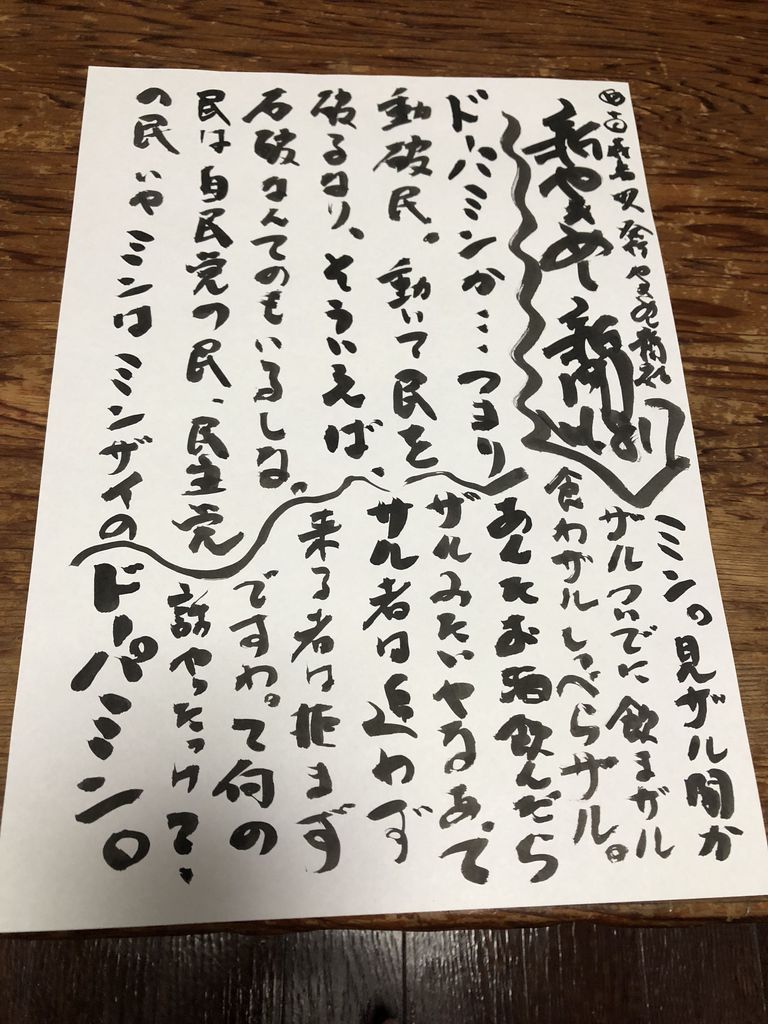 新やきめし新聞
ドーパミンか…つまり
動破民。動いて民を
破るなり、そういえば、
石破なんてのもいるしな。
民は自民党の民、民主党
の民 いや ミンは ミンザイの
ミン。見ザル聞か
ザルついでに飲まザル
食わザルしゃべらザル。
あんたお酒飲んだら
ザルみたいやなあ、て
サル者は追わず
来る者は拒まず
ですわ。て何の
話やったっけて、
ドーパミン。